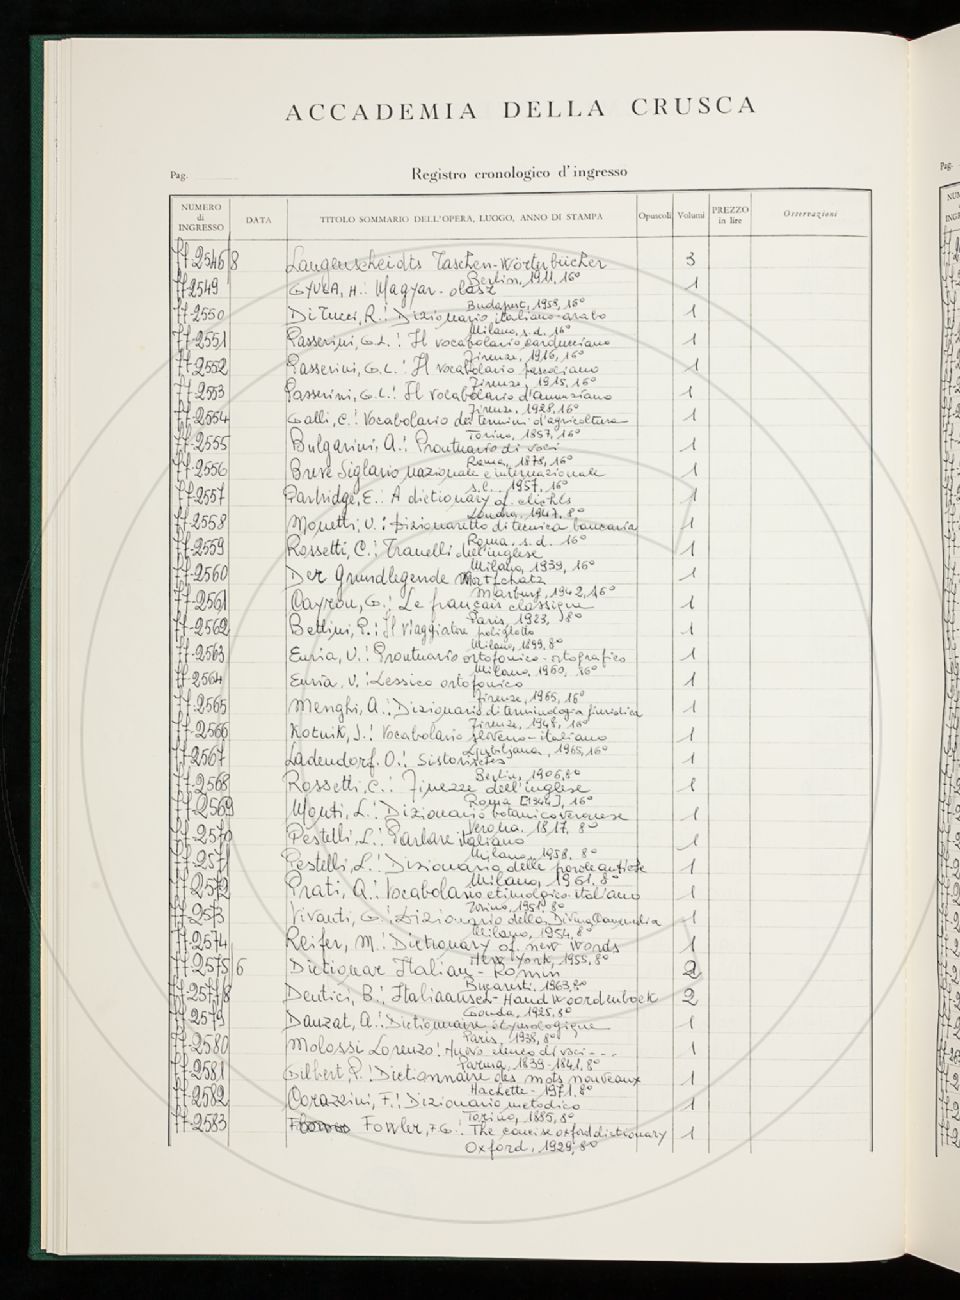 ACCADEMIA DELLA CRUSCA
Pag.
Registro cronologico d'ingresso
NUMERO di INGRESSO DATA TITOLO SOMMARIO DELL'OPERA, LUOGO, ANNO DI STAMPA Opuscoli Volumi PREZZO in lire Osservazioni
2546/8 Langenscheidts Taschen-Wörterbücher 3
Berlin, 1911, 16°
2549 Gyula, H.: Magyar-olasz 1
Budapest, 1958, 16°
2550 Di Tucci, R.: Dizionario italiano-arabo 1
Milano, s.d. 16°
2551 Passerini, G.L.: Il vocabolario carducciano 1
Firenze, 1916, 16°
2552 Passerini, G.L.: Il vocabolario pascoliano 1
Firenze, 1915, 16°
2553 Passerini, G.L.: Il vocabolario d'annunziano 1
Firenze, 1928, 16°
2554 Galli, C.: Vocabolario dei termini d'agricoltura 1
Torino, 1857, 16°
2555 Bulgarini, A.: Prontuario di voci 1
Roma, 1878, 16°
2556 Breve Siglario nazionale e internazionale 1
s.l. 1957, 16°
2557 Partridge, E.: A dictionary of clichés 1
Londra, 1947, 8°
2558 Monetti, U.: Dizionaretto di tecnica bancaria 1
Roma, s.d. 16°
2559 Rossetti, C.: Tranelli dell'inglese 1
Milano, 1939, 16°
2560 Der Grundlegende Wortschatz 1
Marburg, 1942, 16°
2561 Cayrou, G.: Le français classique 1
Paris, 1923, 8°
2562 Bettini, P.: Il viaggiatore poliglotto 1
Milano, 1899, 8°
2563 Enrìa, U.: Prontuario ortofonico-ortografico 1
Milano, 1960, 16°
2564 Enrìa, U.: Lessico ortofonico 1
Firenze, 1965, 16°
2565 Menghi, A.: Dizionario di terminologia giuridica 1
Firenze, 1948, 16°
2566 Kotnik, J.: Vocabolario sloveno-italiano 1
Ljubljana, 1965, 16°
2567 Ladendorf, O.: 1
Berlin, 1906, 8°
2568 Rossetti, C.: Finezze dell'inglese 1
Roma [1944], 16°
2569 Monti, L.: Dizionario botanico veronese 1
Verona, 1817, 8°
2570 Pestelli, L.: Parlare italiano 1
Milano, 1958, 8°
2571 Pestelli, L.: Dizionario delle parole antiche 1
Milano, 1961, 8°
2572 Prati, A.: Vocabolario etimologico italiano 1
Torino, 1951, 8°
2573 Vivanti, G.: Dizionario della Divina Commedia 1
Milano, 1954, 8°
2574 Reifer, M.: Dictionary of new words 1
New York, 1955, 8°
2575/6 Dictionar Italian-Român 2
Bucaresti, 1963, 8°
2577/8 Dentici, B.: Italiaansch-Handwoordenboek 2
Gouda, 1925, 8°
2579 Dauzat, A.: Dictionnaire étymologique 1
Paris, 1938, 8°
2580 Molossi Lorenzo: Nuovo elenco di voci... 1
Parma, 1839-1841, 8°
2581 Gilbert, P.: Dictionnaire des mots nouveaux 1
Hachette-1971, 8°
2582 Corazzini, F.: Dizionario metodico 1
Torino, 1885, 8°
2583 Fowler, F.G.: The concise oxford dictionary 1
Oxford, 1929, 8°